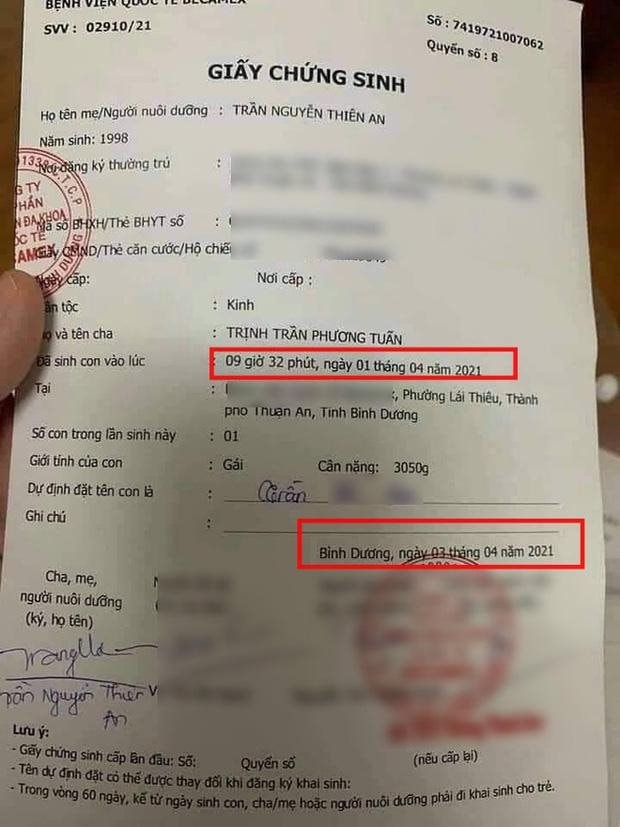 BỆNH VIỆN QUỐC TẾ BECAMEX
SVV : 02910/21
Số : 7419721007062
Quyển số : 8
GIẤY CHỨNG SINH
Họ tên mẹ/Người nuôi dưỡng : TRẦN NGUYỄN THIÊN AN
Năm sinh: 1998
Nơi đăng ký thường trú :
Mã số BHXH/Thẻ BHYT số :
Giấy CMND/Thẻ căn cước/Hộ chiếu
Ngày cấp: Nơi cấp :
Dân tộc : Kinh
Họ và tên cha : TRỊNH TRẦN PHƯƠNG TUẤN
Đã sinh con vào lúc : 09 giờ 32 phút, ngày 01 tháng 04 năm 2021
Tại : , Phường Lái Thiêu, Thành
phố Thuận An, Tỉnh Bình Dương
Số con trong lần sinh này : 01
Giới tính của con : Gái Cân nặng: 3050g
Dự định đặt tên con là : Trần
Ghi chú :
Bình Dương, ngày 03 tháng 04 năm 2021
Cha, mẹ,
người nuôi dưỡng
(ký, họ tên)
Trần Nguyễn Thiên
An
Lưu ý:
- Giấy chứng sinh cấp lần đầu: Số: Quyển số (nếu cấp lại)
- Tên dự định đặt có thể được thay đổi khi đăng ký khai sinh:
- Trong vòng 60 ngày, kể từ ngày sinh con, cha/mẹ hoặc người nuôi dưỡng phải đi khai sinh cho trẻ.